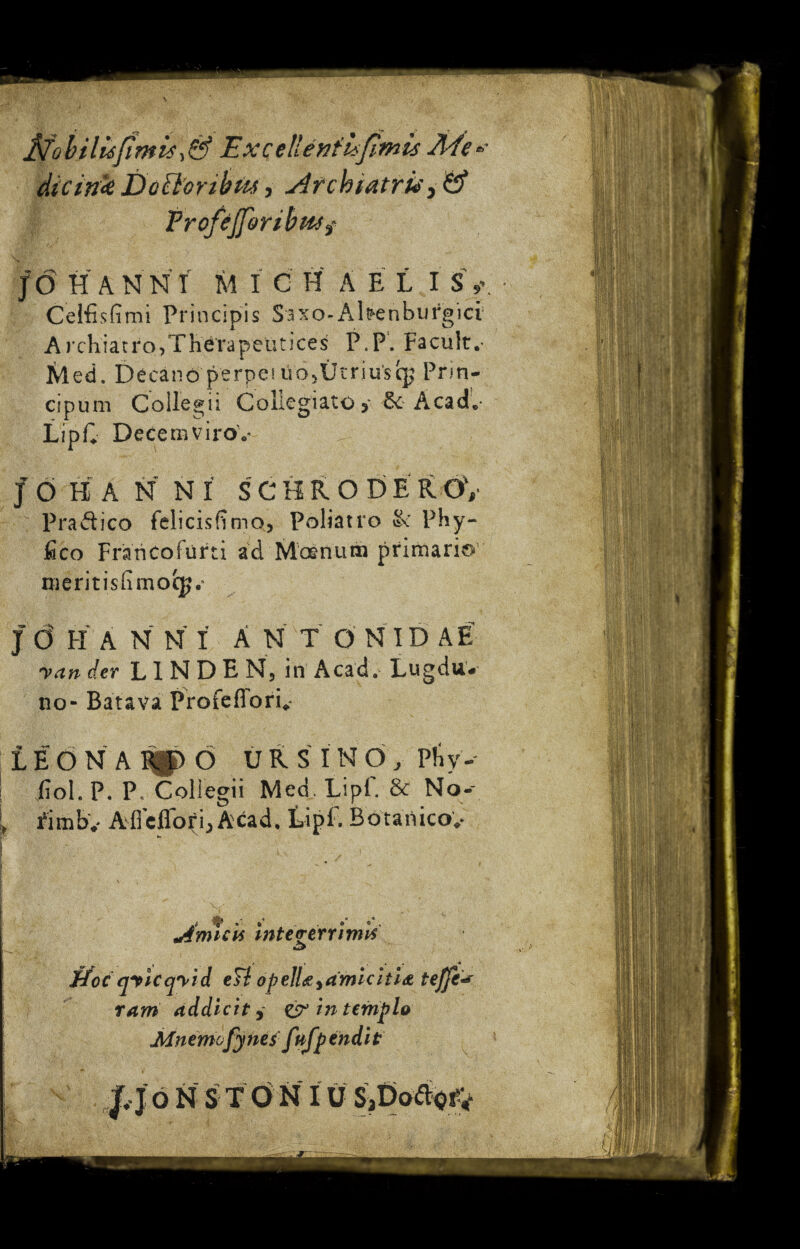 Nobilisſimis, & Excellentisſimis Me-
dicinæ Doctoribus, Archiatris, &
Profeſſoribus,
JOHANNI MICHAELIS,
Celſisſimi Principis Saxo-Altenburgici
Archiatro, Therapeutices P.P. Facult.
Med. Decano perpetuo, Utriusq; Prin-
cipum Collegii Collegiato, & Acad.
Lipſ. Decemviro.
JOHANNI SCHRODERO,
Practico felicisſimo, Poliatro & Phy-
ſico Francofurti ad Mœnum primario
meritisſimoq;.
JOHANNI ANTONIDAE
van der LINDEN, in Acad. Lugdu-
no-Batava Profeſſori.
LEONARDO URSINO, Phy-
ſiol. P. P. Collegii Med. Lipſ. & No-
rimb. Aſſeſſori, Acad. Lipſ. Botanico.
Amicis integerrimis
Hoc qvicqvid eſt opellæ, amicitiæ teſſe-
ram addicit, & in templo
Mnemoſynes ſuſpendit
J. JONSTONIUS, Doctor.